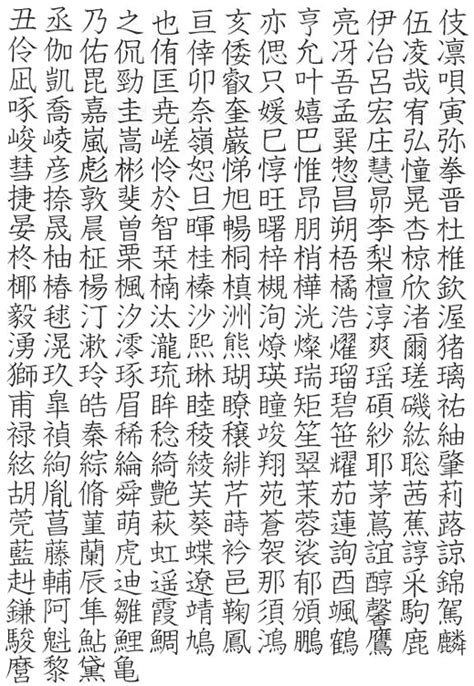 丑丞乃之也亘亥亦亨亮伊伍伎
伶伽佑侃侑倖倭偲允冴冶凌凜
凪凱毘勁匡卯叡只叶吾呂哉唄
啄喬嘉圭尭奈奎媛嬉孟宏宥寅
峻崚嵐嵩嵯嶺巌巳巴巽庄弘弥
彗彦彪彬怜恕悌惇惟惣慧憧拳
捷捺敦斐於旦旭旺昂昌昴晃晋
晏晟晨曽智暉暢曙朋朔李杏杜
柊柚柾栗栞桂桐梓梢梧梨椋椎
椰椿楊楓楠榛槙槻樺橘檀欣欽
毅毬汀汐汰沙洲洵洸浩淳渚渥
湧滉漱澪瀧熙熊燎燦燿爽爾猪
獅玖玲琢琉琳瑚瑛瑞瑠瑶瑳璃
甫皐皓眉眸睦瞭瞳矩碧碩磯祐
禄禎秦稀稔稜穣竣笙笹紗紘紬
絃絢綜綸綺綾緋翔翠耀耶聡肇
胡胤脩舜艶芙芹苑茉茄茅茜莉
莞菖菫萌萩葵蒔蒼蓉蓮蔦蕉蕗
藍藤蘭虎虹蝶衿袈裟詢誼諄諒
赳輔辰迪遥遼邑那郁酉醇采錦
鎌阿隼雛霞靖鞠須頌颯馨駒駕
駿魁鮎鯉鯛鳩鳳鴻鵬鶴鷹鹿麟
麿黎黛亀